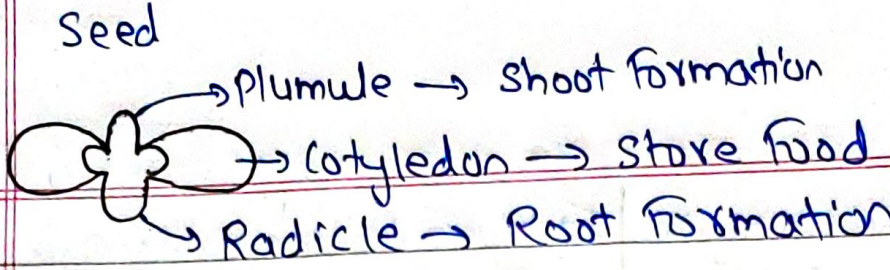 Seed
Plumule → Shoot Formation
Cotyledon → Store Food
Radicle → Root Formation